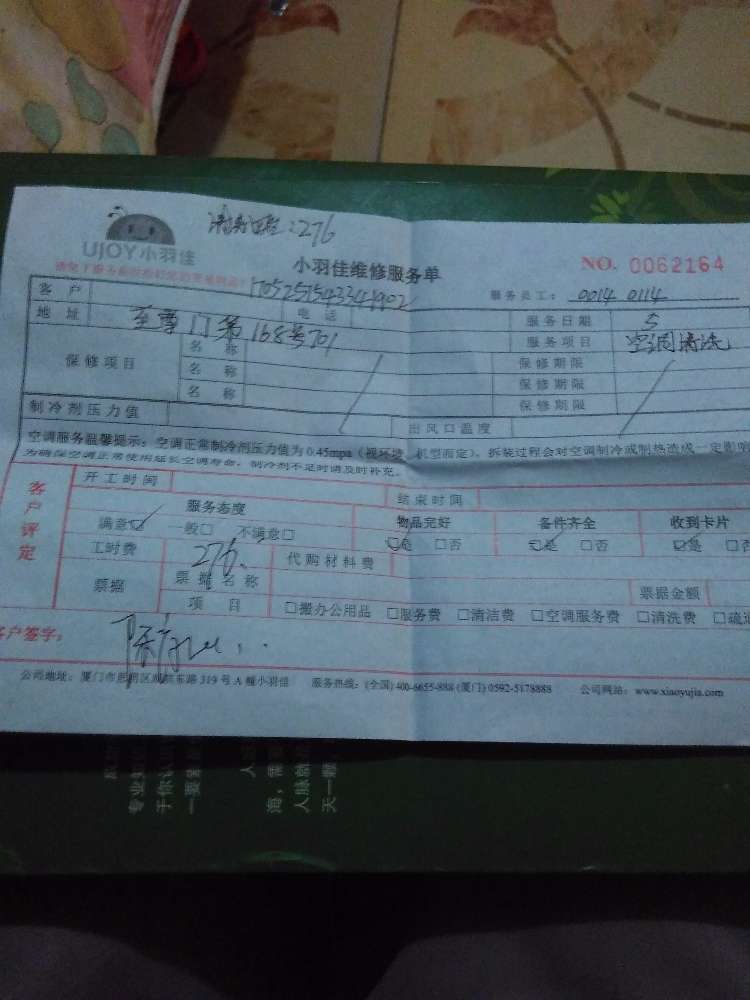 :276
UJOY小羽佳
小羽佳维修服务单
NO. 0062164
服务员工: 0014 0114
客户
电话
服务日期 5
地址 至尊门第168号701
服务项目 空调清洗
保修项目
名称 保修期限
名称 保修期限
名称 保修期限
制冷剂压力值
出风口温度
空调服务温馨提示：空调正常制冷剂压力值为0.45mpa（视环境、机型而定），拆装过程会对空调制冷或制热造成一定影响
为确保空调正常使用延长空调寿命，制冷剂不足时请及时补充。
客户评定
开工时间
结束时间
服务态度 物品完好 备件齐全 收到卡片
满意☑ 一般□ 不满意□ ☑是 □否 ☑是 □否 ☑是 □否
工时费 276. 代购材料费
票据
票据名称
票据金额
项目 □搬办公用品 □服务费 □清洁费 □空调服务费 □清洗费
客户签字：
公司地址：厦门市思明区 东路319号A幢小羽佳 服务热线：(全国) 400-6655-888 (厦门) 0592-5178888 公司网站：www.xiaoyujia.com
专业
于你认
一要
人
海，需
人脉就
天一